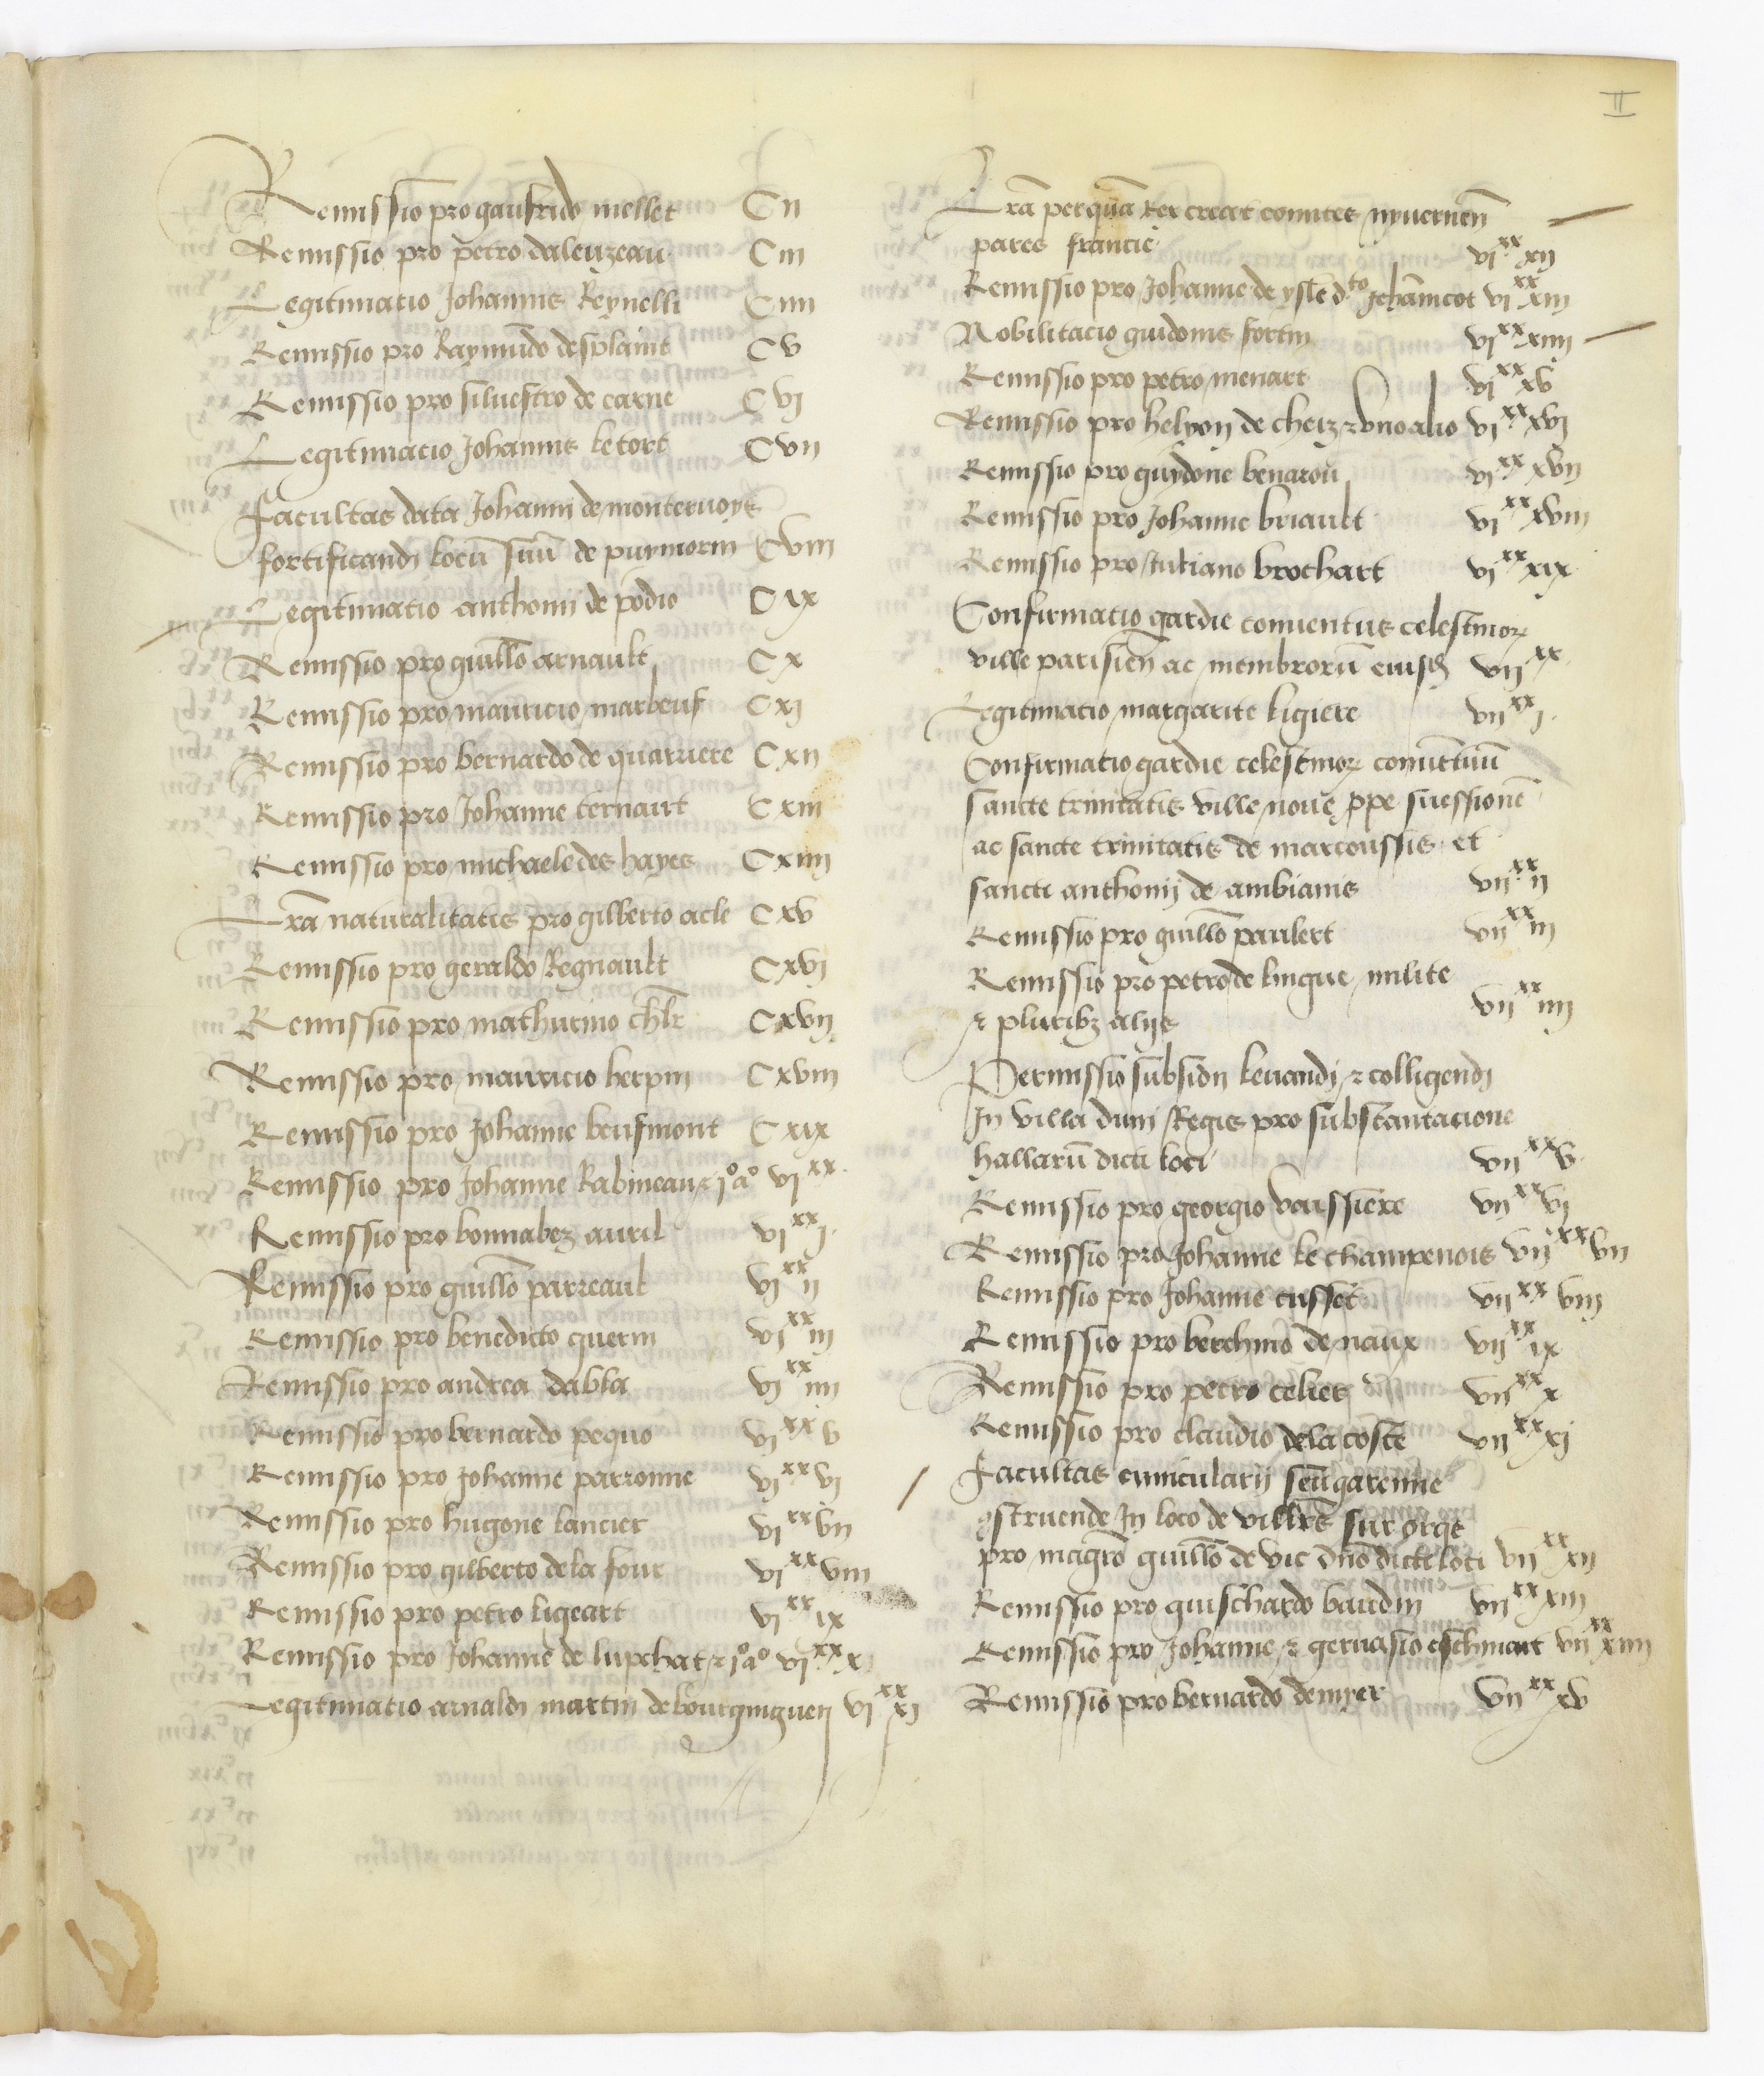 II
Remissio pro gaufrido mellet Cii
Remissio pro petro daleuzeau Ciii
Legitimatio Johannis Reynelli Ciiii
Remissio pro Raymūdo desplaint CV
Remissio pro silvestro de carne CVj
Legitimacio Johannis letort CVii
Facultas data Johanni de montervoys
fortificandi locū suū de puymorin CViii
Legitimatio anthonii de podio Cix
Remissio pro guillō arnault Cx
Remissio pro mauricio marbeuf Cxj
Remissio pro bernardo de quarriere Cxii
Remissio pro Johanne ternaut Cxiii
Remissio pro michaele des hayes Cxiiii
Lrā naturalitatis pro gilberto acle CxV
Remissio pro geraldo Regnault CxVj
Remissio pro mathurino chlr CxVij
Remissio pro mauricio herpin CxViii
Remissio pro Johanne beufmont Cxix
Remissio pro Johanne Rabineau & jº aº Vjxx
Remissio pro bonnabez avril Vjxxj
Remissio pro guillō parreault Vjxxii
Remissio pro benedicto querin Vjxxiii
Remissio pro andrea dabla Vjxxiiii
Remissio pro bernardo pequo VjxxV
Remissio pro Johanne parronne VjxxVj
Remissio pro hugone lancier VjxxVii
Remissio pro gilberto de la four VjxxViii
Remissio pro petro ligeart Vjxxix
Remissio pro Johanne de lupchat & jº aº Vjxxx
Legitimatio arnaldi martin de bourguignen Vjxxxj
Lrā per quā Rex creat comites nyvernen̄
pares francie Vjxxxij
Remissio pro Johanne de yste d.to Jehānicot Vjxxxiii
Nobilitacio guidonis fortin Vjxxxiiii
Remissio pro petro menart VjxxxV
Remissio pro helyon de cheiz & uno alio VjxxxVj
Remissio pro guydone benarou VjxxxVii
Remissio pro Johanne briault VjxxxViii
Remissio pro Juliano brochart Vjxxxix
Confirmatio gardie conventus celestinoꝝ
ville parisien̄ ac membrorū eiusd Viixx
Legitimatio margarite ligiere Viixxj
Confirmatio gardie celestinoꝝ conuētuū
sancte trinitatis ville nove ꝓpe suessionē
ac sancte trinitatis de marcoussis et
sancti anthonij de ambianis Viixxii
Remissio pro guillō paulert Viixxiii
Remissio pro petro de lingue milite
& pluribꝫ alijs Viixxiiii
Permissio subsidii levandi & colligendi
In villa duni Regis pro substantacione
hallarū dicti loci ViixxV
Remissio pro georgio vaussiere ViixxVj
Remissio pro Johanne le champenois ViixxVii
Remissio pro Johanne cusset ViixxViii
Remissio pro berthino de naux Viixxix
Remissio pro petro celies Viixxx
Remissio pro claudio de la coste Viixxxj
Facultas cunicularij seu garenne
ꝯstruende In loco de villrēs sur orge
pro magrō guillō de vic dnō dicti loci Viixxxii
Remissio pro guischardo baudin Viixxxiii
Remissio pro Johanne & gervasio eschinart Viixxxiiii
Remissio pro bernardo demyer ViixxxV